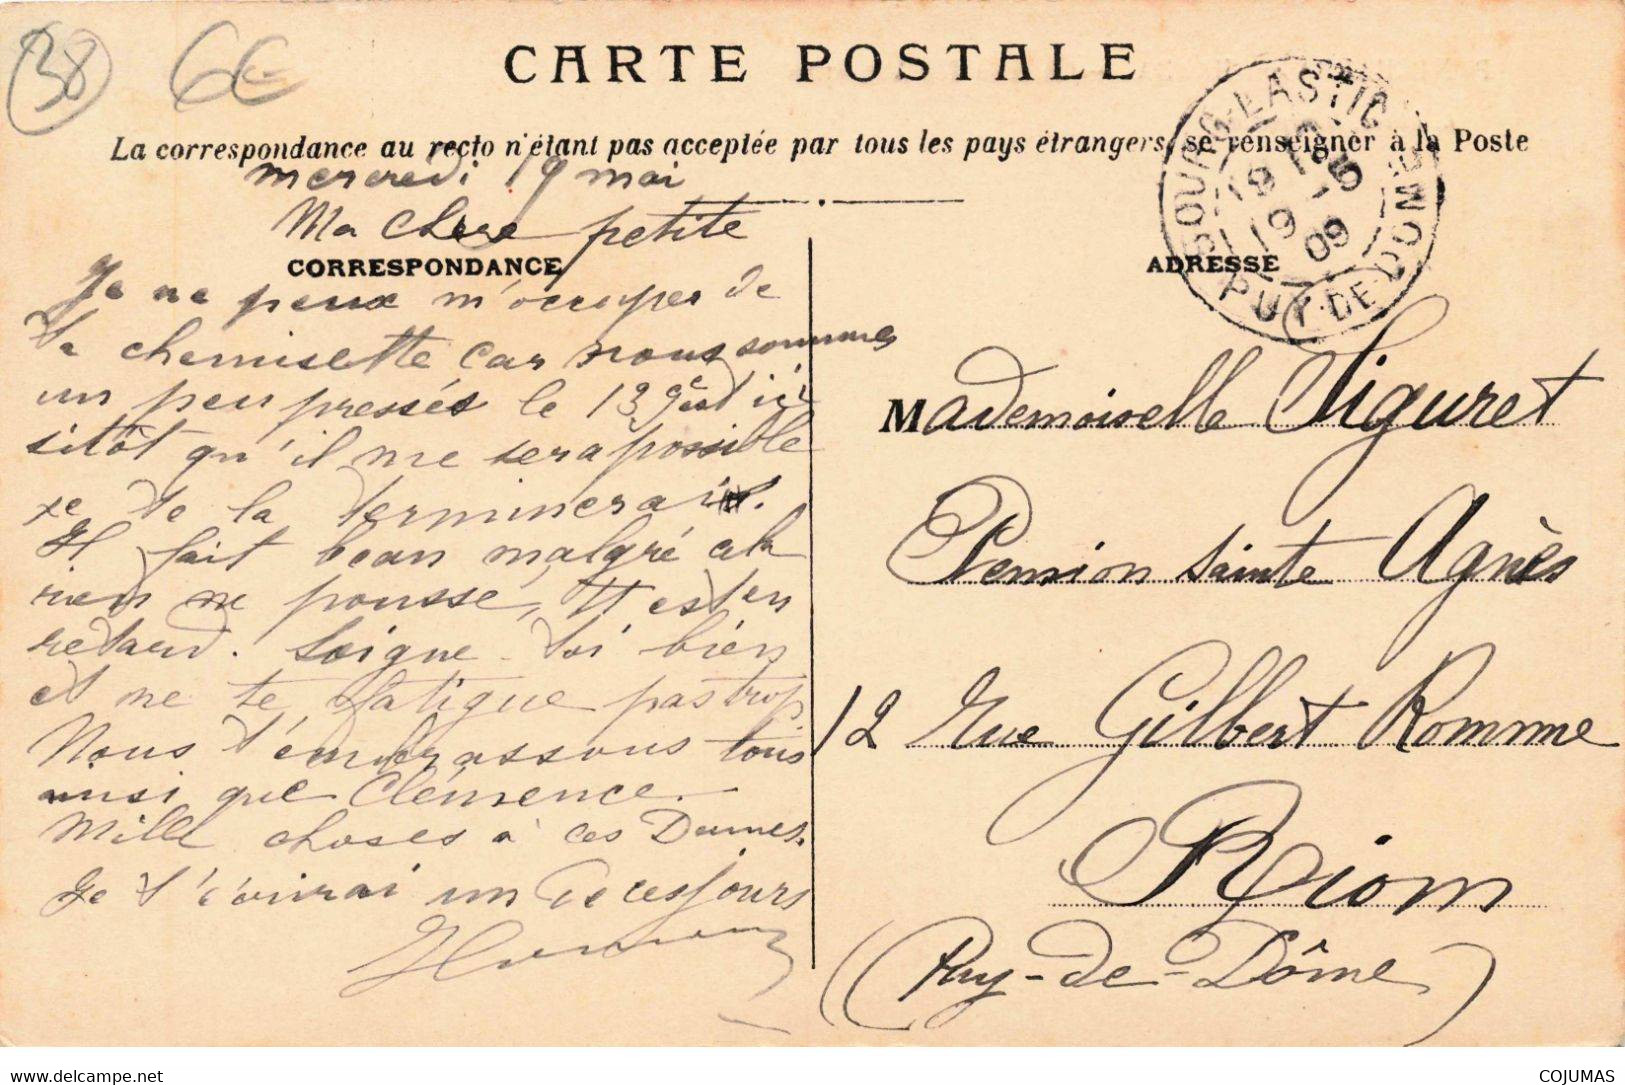 38 6€
CARTE POSTALE
La correspondance au recto n'étant pas acceptée par tous les pays étrangers, se renseigner à la Poste
BOURG-LASTIC
19 -5
09
PUY-DE-DÔME
mercredi 19 mai
Ma chere petite
CORRESPONDANCE
Je ne peux m'occuper de
ta chemisette car nous sommes
un peu pressés le 13e
sitôt qu'il me sera possible
je te la terminerai.
Il fait beau malgré cela
rien ne pousse, tt est en
retard. Soigne-toi bien
et ne te fatigue pas trop.
Nous t'embrassons tous
ainsi que Clémence.
Mille choses à ces Dames.
Je t'écrirai un de ces jours
ADRESSE
Mademoiselle Siguret
Pension sainte Agnès
12 Rue Gilbert Romme
Riom
(Puy-de-Dôme)
delcampe.net
COJUMAS